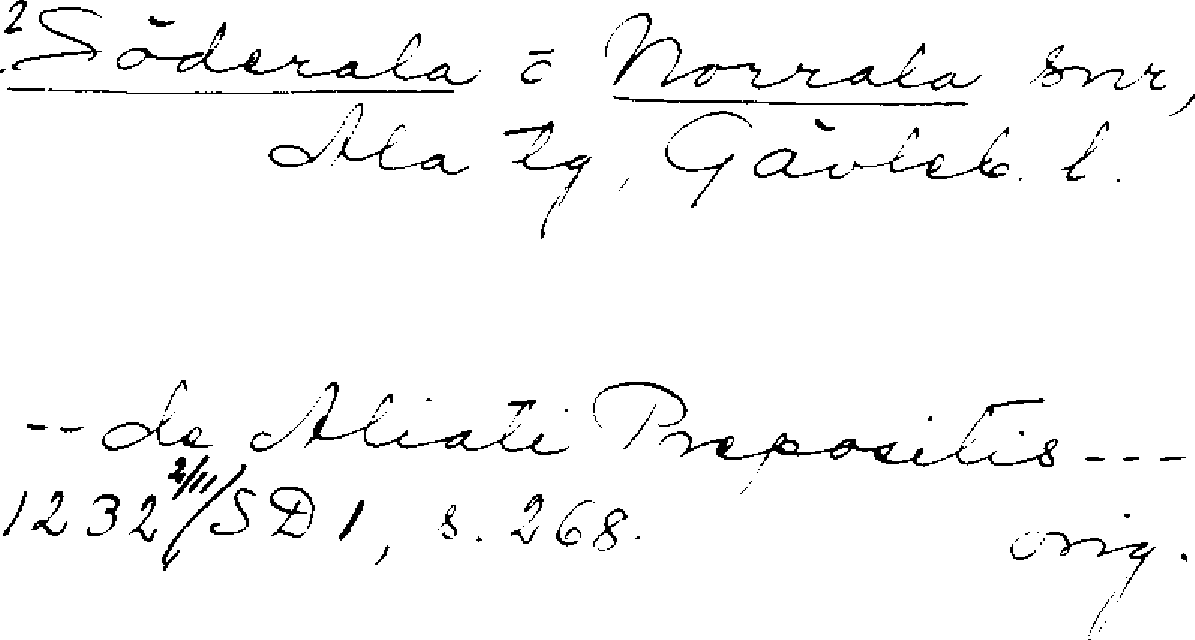 2 Söderala o Norrala snr,
Ala tg, Gävleb. l.
-- de Aliati Prepositis ---
1232 2/11 / SD 1, s. 268. orig.